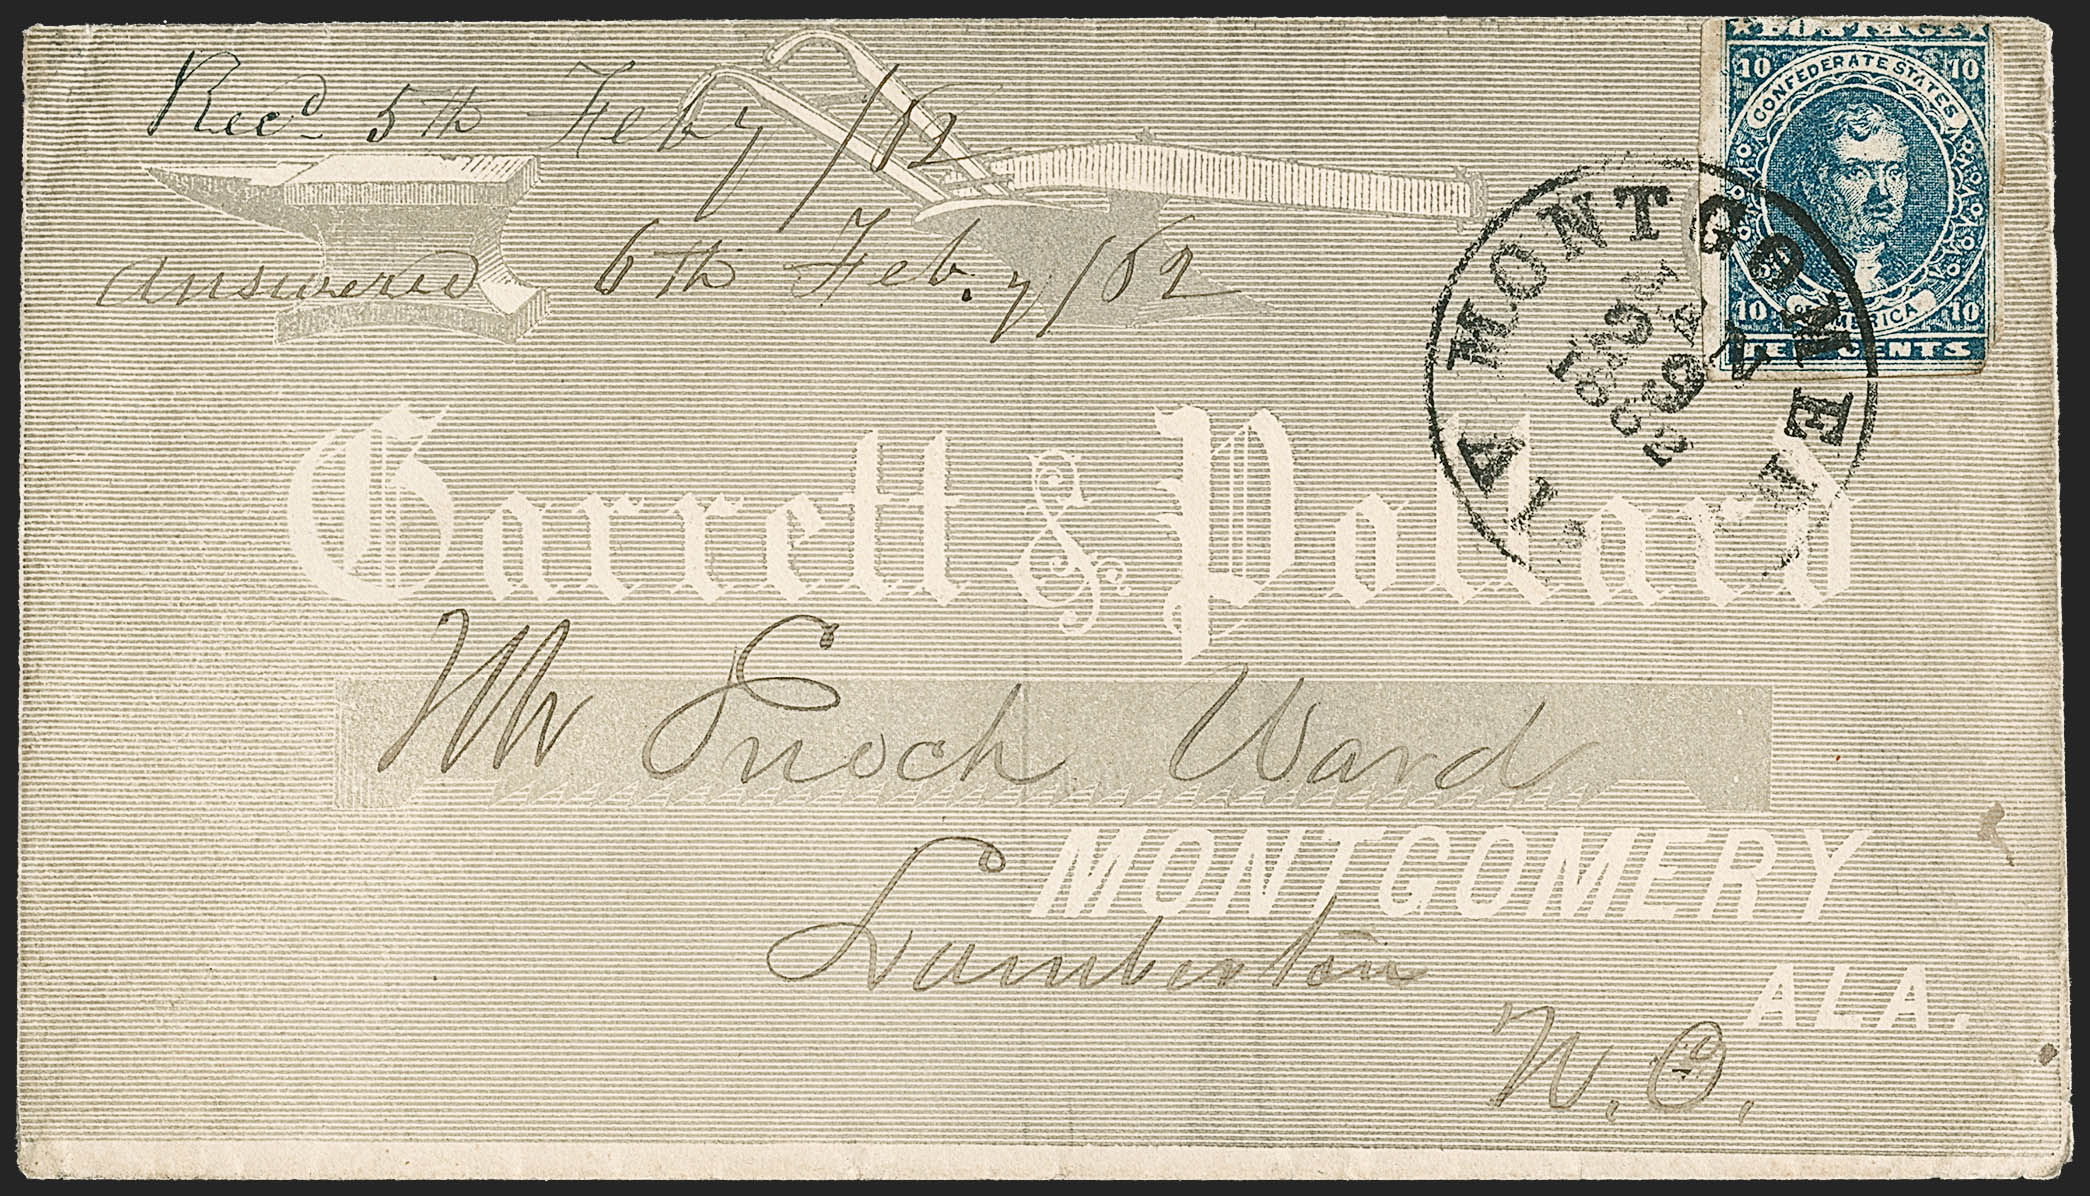 Recd 5th Feby /62
answered 6th Feb.y /62
POSTAGE
10 10
CONFEDERATE STATES
OF AMERICA
10 10
TEN CENTS
MONTGOMERY
ALA.
1862
Garrett & Pollard
Mr Enoch Ward
MONTGOMERY
Lumberton
ALA.
N.C.